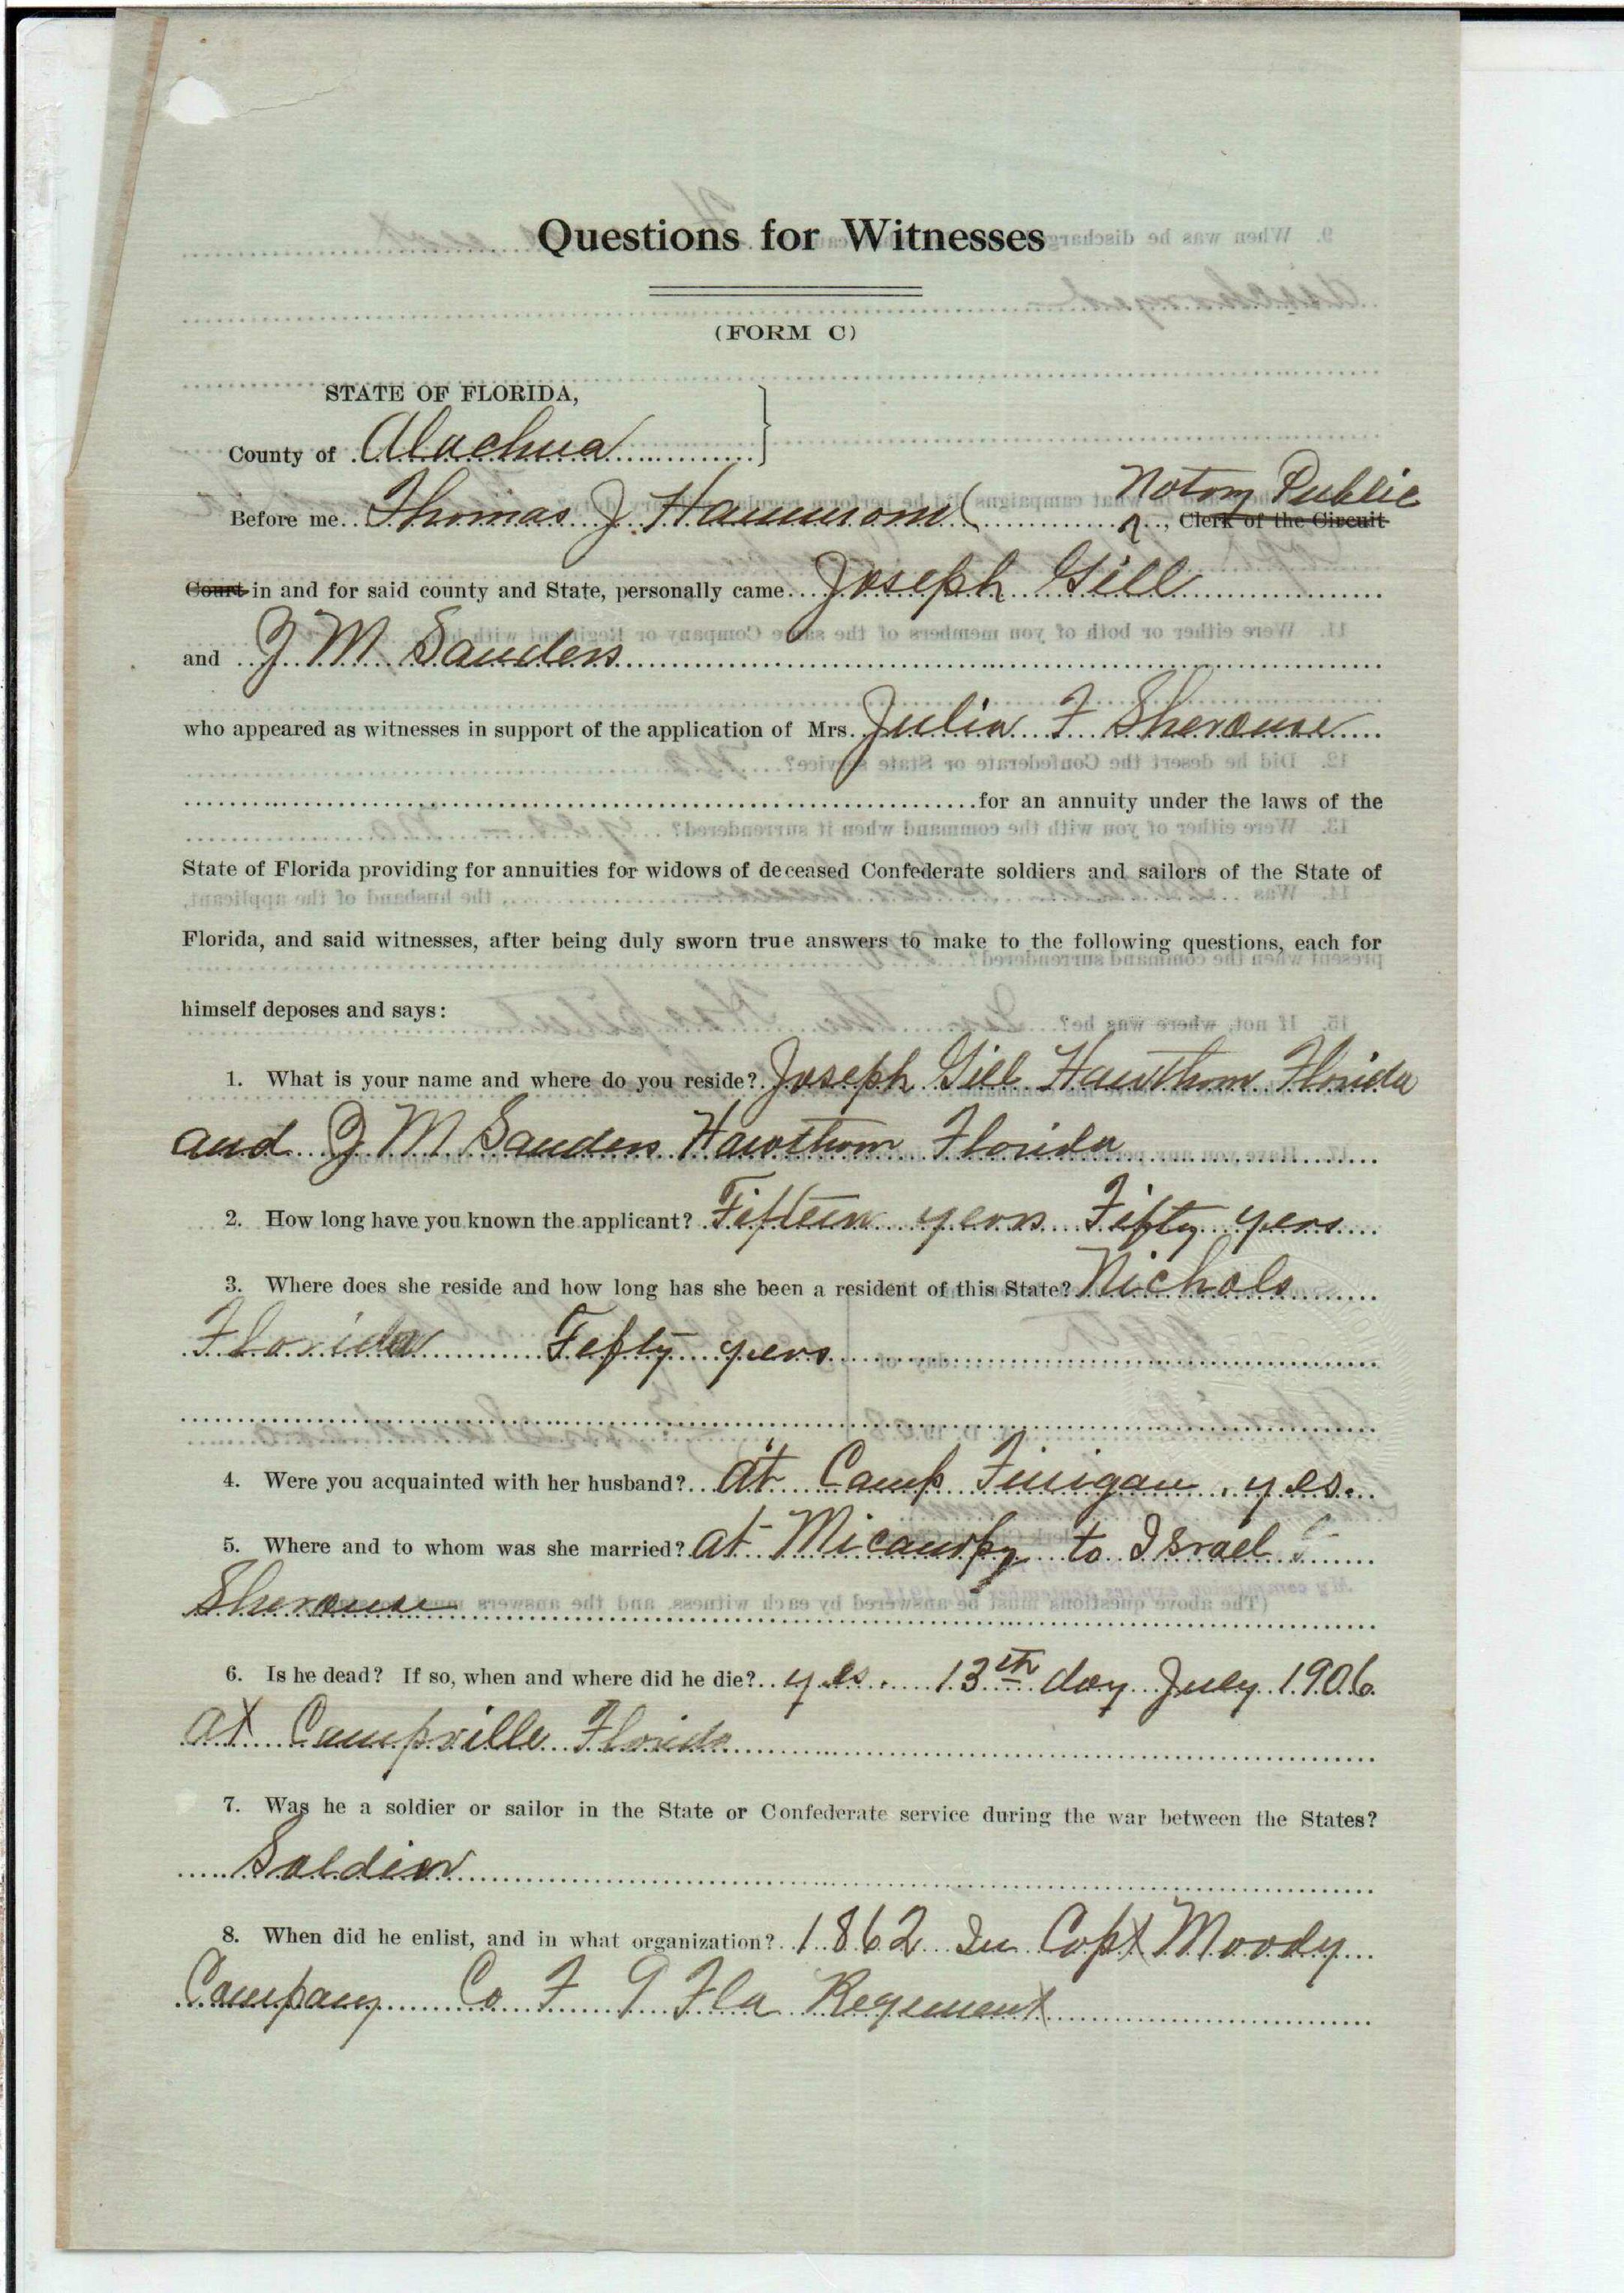 Questions for Witnesses
(FORM C)
STATE OF FLORIDA,
County of Alachua
Notary Public
Before me Thomas J. Hammond , Clerk of the Circuit
Court in and for said county and State, personally came Joseph Gill
and J M Sanders
who appeared as witnesses in support of the application of Mrs. Julia F Sherouse
for an annuity under the laws of the
State of Florida providing for annuities for widows of deceased Confederate soldiers and sailors of the State of
Florida, and said witnesses, after being duly sworn true answers to make to the following questions, each for
himself deposes and says:
1. What is your name and where do you reside? Joseph Gill Hawthorn Florida
and J M Sanders Hawthorn Florida
2. How long have you known the applicant? Fifteen years Fifty yers
3. Where does she reside and how long has she been a resident of this State? Nichols
Florida Fefty yers
4. Were you acquainted with her husband? at Camp Finigan , yes.
5. Where and to whom was she married? at Micanopy to Israel
Sherouse
6. Is he dead? If so, when and where did he die? yes. 13th day July 1906
at Campville Florida
7. Was he a soldier or sailor in the State or Confederate service during the war between the States?
Soldier
8. When did he enlist, and in what organization? 1862 In Capt Moody
Company Co F 9 Fla Regement